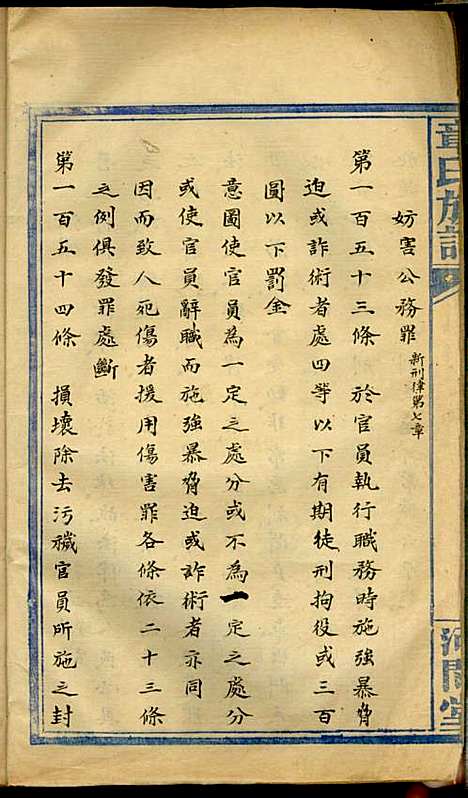 章氏族譜
河間堂
妨害公務罪 新刑律第七章
第一百五十三條 於官員執行職務時施強暴脅
迫或詐術者處四等以下有期徒刑拘役或三百
圓以下罰金
意圖使官員為一定之處分或不為一定之處分
或使官員辭職而施強暴脅迫或詐術者亦同
因而致人死傷者援用傷害罪各條依二十三條
之例俱發罪處斷
第一百五十四條 損壞除去污穢官員所施之封